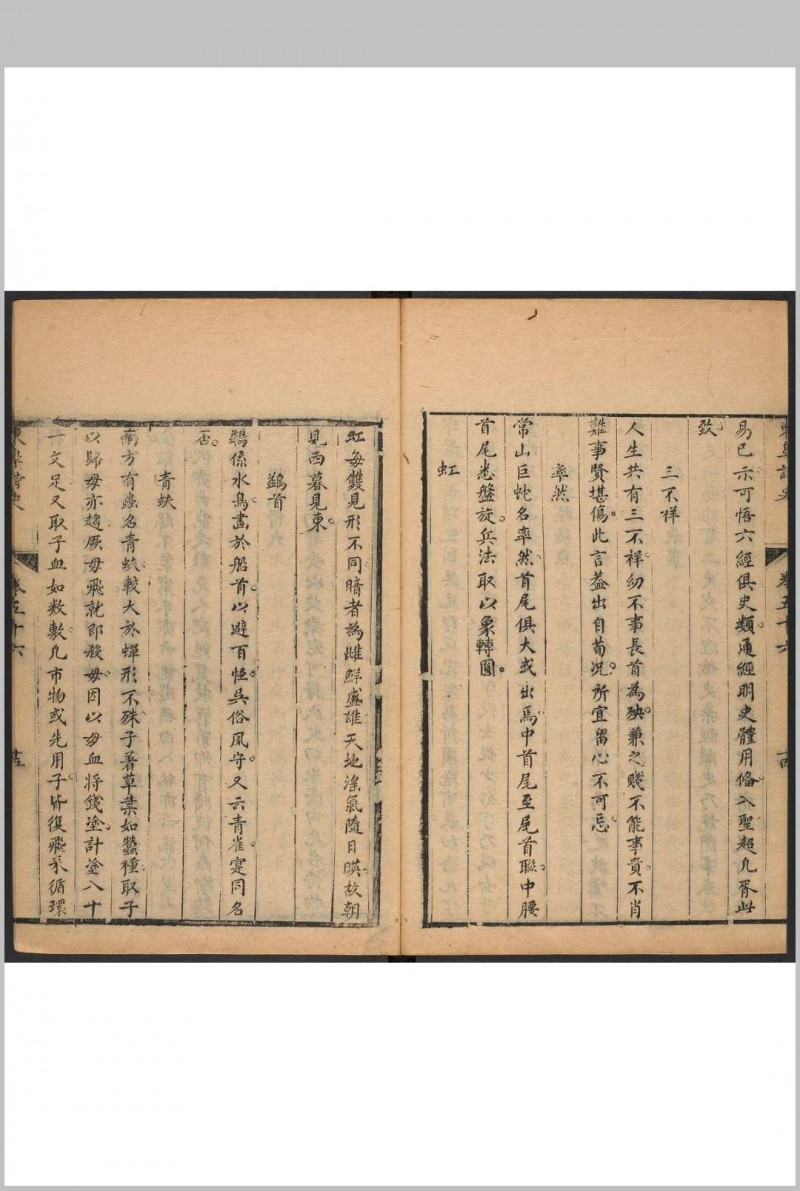 易已示可悟六經俱史類通經明史體用俻入聖超凡胥此
致
三不祥
人生共有三不祥幼不事長首為殃兼之賤不能事貴不肖
難事賢堪傷此言蓋出自荀況所宜留心不可忌
率然
常山巨蛇名率然首尾俱大或出焉中首尾至尾首聮中腰
首尾悉盤旋兵法取以象轉圓
虹
虹每雙見形不同暗者為雌鮮盛雄天地滛氣隨日暎故朝
見西暮見東
鷁首
鷁係水鳥畫於船首以避百怪吳俗風守又云青雀寔同名
否
青蚨
南方有蟲名青蚨較大於蟬形不殊子著草葉如蠶種取子
以歸母亦趨厥母飛就即殺母因以母血將錢塗計塗八十
一文足又取子血如数敷凡市物或先用子皆復飛來循環
卷五十六